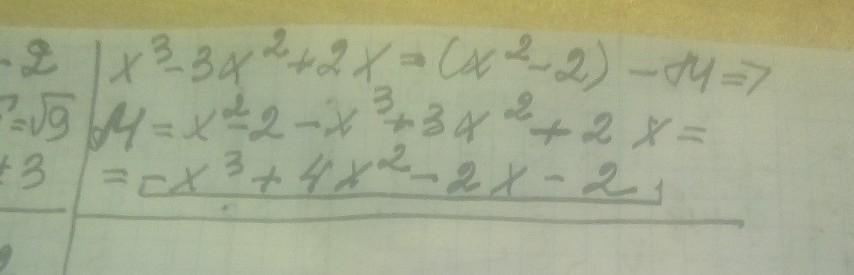 -2 | x³-3x²+2x = (x²-2) - M =>
=√9 | M = x²-2-x³+3x²+2x =
±3 | = -x³+4x²-2x-2